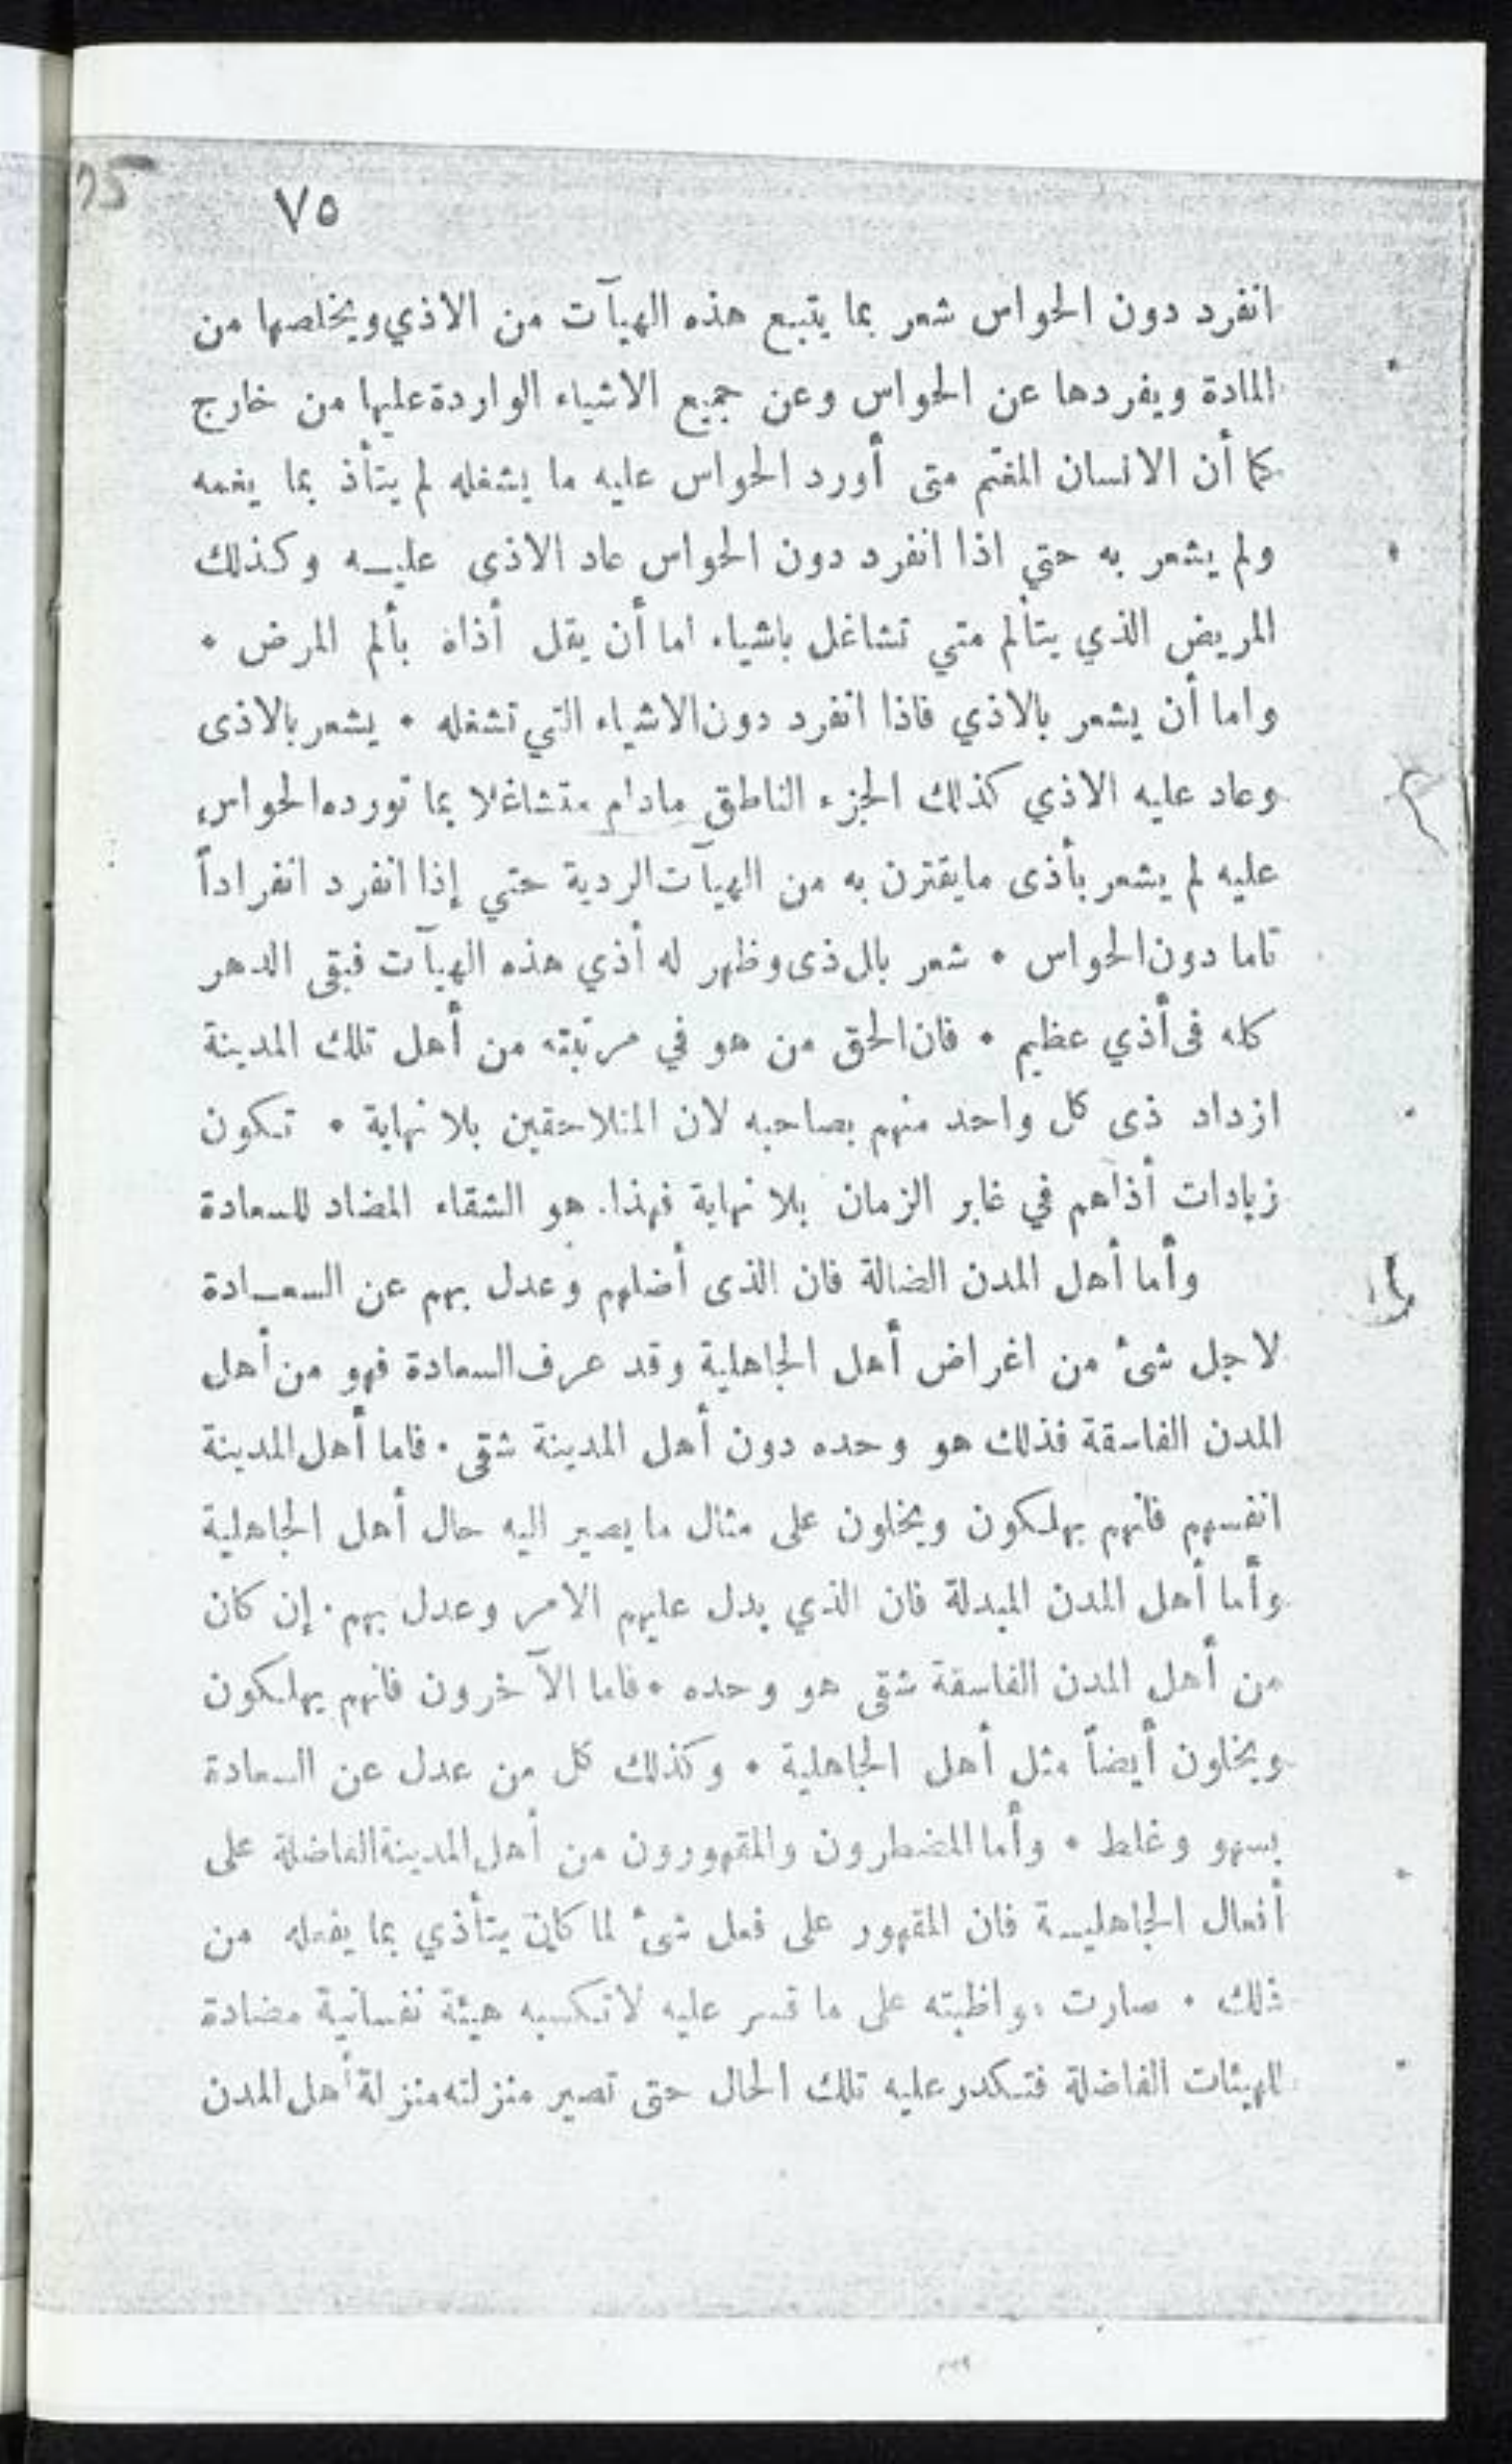 75
٧٥
انفرد دون الحواس شعر بما يتبع هذه الهيآت من الاذي ويخلصها من
المادة ويفردها عن الحواس وعن جميع الاشياء الواردة عليها من خارج
كما أن الانسان المغتم متى أورد الحواس عليه ما يشغله لم يتأذ بما يغمه
ولم يشعر به حتي اذا انفرد دون الحواس عاد الاذى عليه وكذلك
المريض الذي يتألم متي تشاغل باشياء اما أن يقل أذاه بألم المرض •
واما أن يشعر بالاذي فاذا انفرد دون الاشياء التي تشغله • يشعر بالاذى
وعاد عليه الاذي كذلك الجزء الناطق مادام متشاغلا بما تورده الحواس
عليه لم يشعر بأذى مايقترن به من الهيآت الردية حتي إذا انفرد انفراداً
تاما دون الحواس • شعر بالذى وظهر له أذي هذه الهيآت فبقى الدهر
كله فى أذي عظيم • فان الحق من هو في مرتبته من أهل تلك المدينة
ازداد ذى كل واحد منهم بصاحبه لان المتلاحقين بلا نهاية • تكون
زيادات أذاهم في غابر الزمان بلا نهاية فهذا. هو الشقاء المضاد للسعادة
وأما أهل المدن الضالة فان الذى أضلهم وعدل بهم عن السعادة
لاجل شئ من اغراض أهل الجاهلية وقد عرف السعادة فهو من أهل
المدن الفاسقة فذلك هو وحده دون أهل المدينة شقى • فاما أهل المدينة
انفسهم فانهم يهلكون ويخلون على مثال ما يصير اليه حال أهل الجاهلية
وأما أهل المدن المبدلة فان الذي بدل عليهم الامر وعدل بهم • إن كان
من أهل المدن الفاسقة شقى هو وحده • فاما الآخرون فانهم يهلكون
ويخلون أيضاً مثل أهل الجاهلية • وكذلك كل من عدل عن السعادة
بسهو وغلط • وأما المضطرون والمقهورون من أهل المدينة الفاضلة على
أفعال الجاهلية فان المقهور على فعل شئ لما كان يتأذي بما يفعله من
ذلك • صارت مواظبته على ما قسر عليه لاتكسبه هيئة نفسانية مضادة
للهيئات الفاضلة فتكدر عليه تلك الحال حتى تصير منزلته منزلة أهل المدن